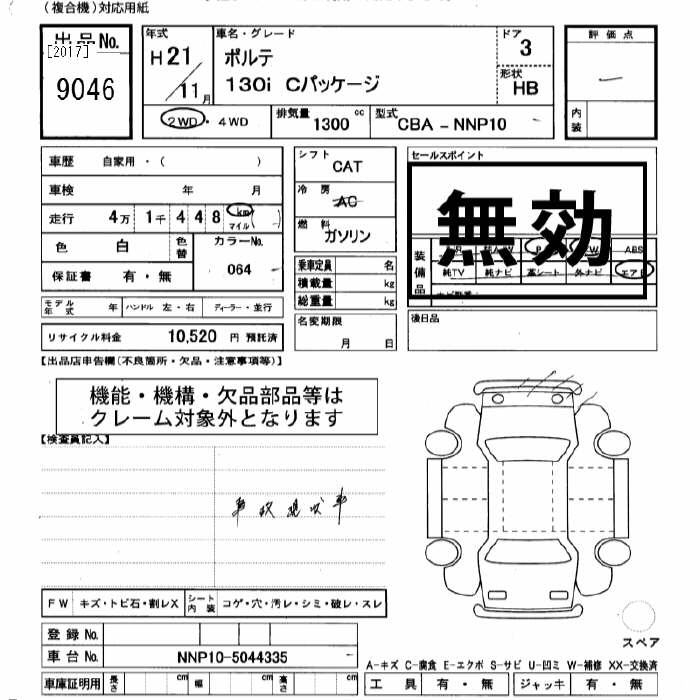 (複合機)対応用紙
出品No.
[2017]
9046
年式
H21
11月
車名・グレード
ポルテ
130i Cパッケージ
ドア
3
形状
HB
評価点
内装
2WD・4WD
排気量
1300 cc
型式
CBA－NNP10
車歴 自家用・( )
車検 年 月
走行 4万 1千 4 4 8 km
マイル ( )
色 白
色替
カラーNo.
064
保証書 有・無
モデル年式 年 ハンドル 左・右 ディーラー・並行
リサイクル料金 10,520 円 預託済
シフト
CAT
冷房
AC
燃料
ガソリン
乗車定員 名
積載量 kg
総重量 kg
名変期限
月 日
セールスポイント
無効
装備品
ABS
純TV 純ナビ 革シート 外ナビ エアB
後日品
【出品店申告欄(不良箇所・欠品・注意事項等)】
機能・機構・欠品部品等は
クレーム対象外となります
【検査員記入】
事故現状車
FW キズ・トビ石・割レX
シート内装 コゲ・穴・汚レ・シミ・破レ・スレ
登録No.
車台No. NNP10-5044335
車庫証明用 長さ cm 幅 cm 高さ cm
スペア
A-キズ C-腐食 E-エクボ S-サビ U-凹ミ W-補修 XX-交換済
工具 有・無 ジャッキ 有・無